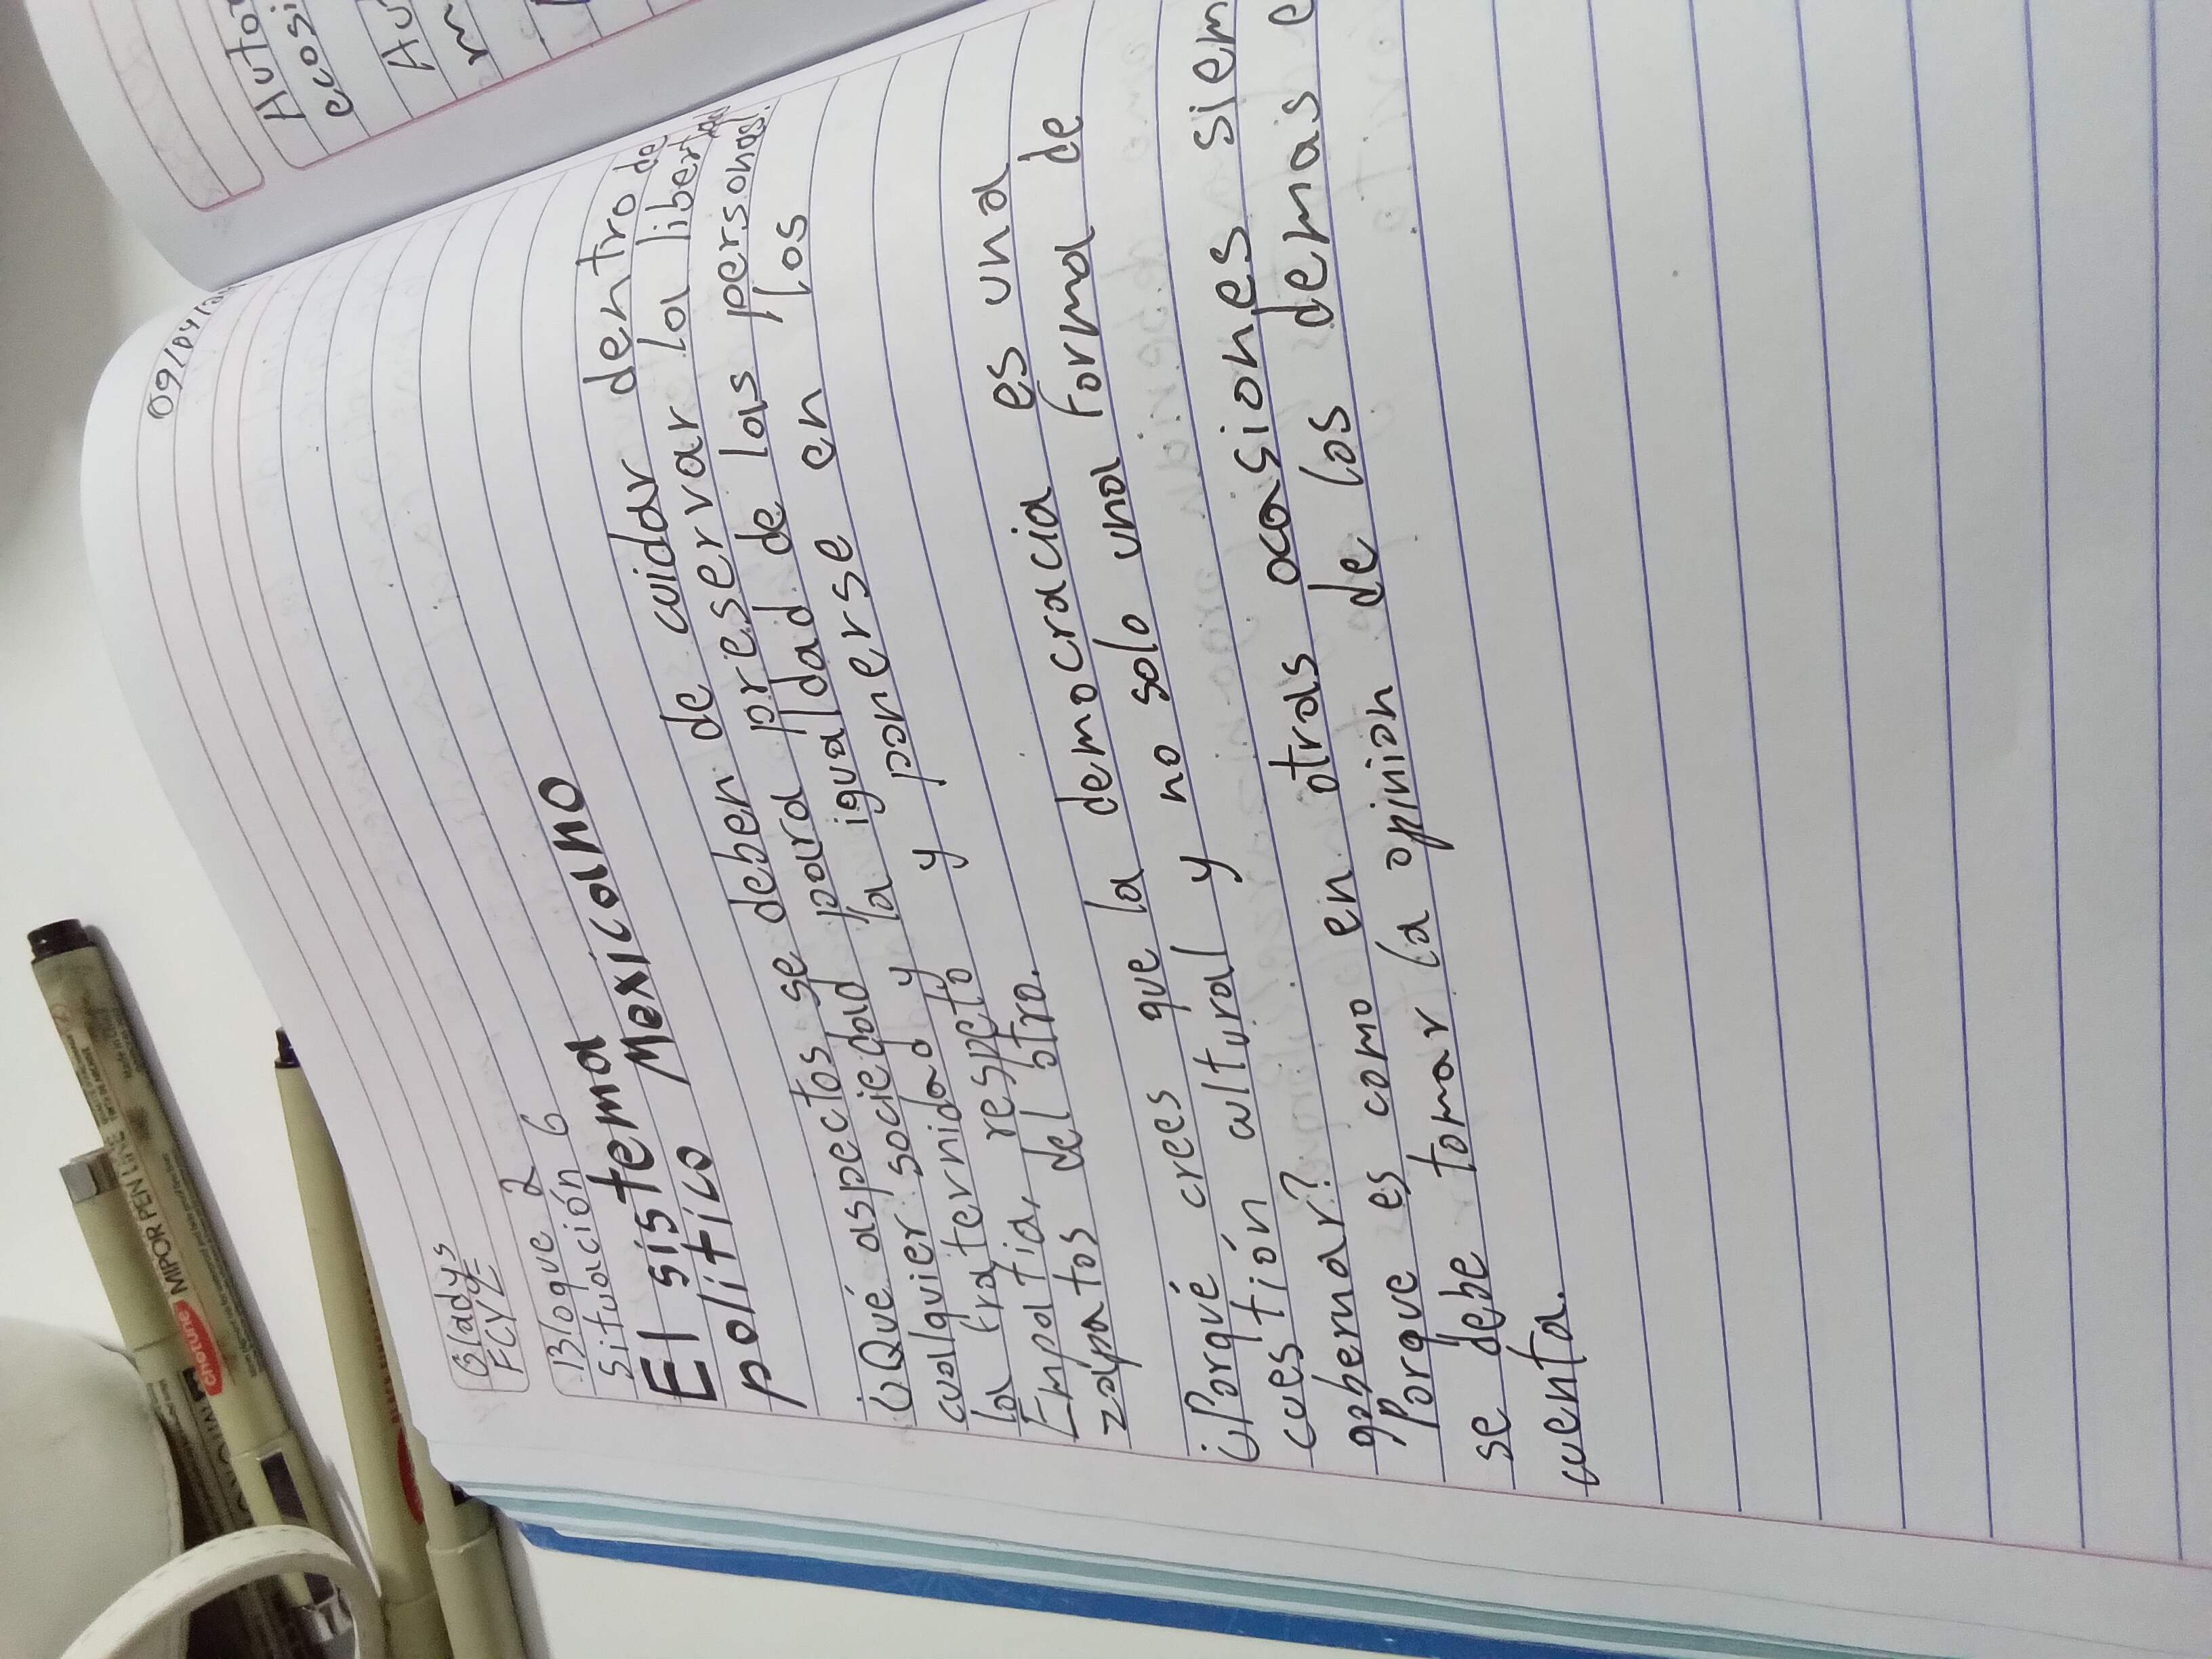 09/04/
Gladys
FCYE
Bloque 2
Situación 6
El sistema
político Mexicano
¿Qué aspectos se deben de cuidar dentro de
cualquier sociedad para preservar la libertad
la fraternidad y la igualdad de las personas?
Empatía, respeto y ponerse en los
zapatos del otro.
¿Porqué crees que la democracia es una
cuestión cultural y no solo una forma de
gobernar?
Porque es como en otras ocasiones siem
se debe tomar la opinion de los demas e
cuenta.
Auto
ecosi
Au
m
CHOTUNE MIPOR PEN LINE